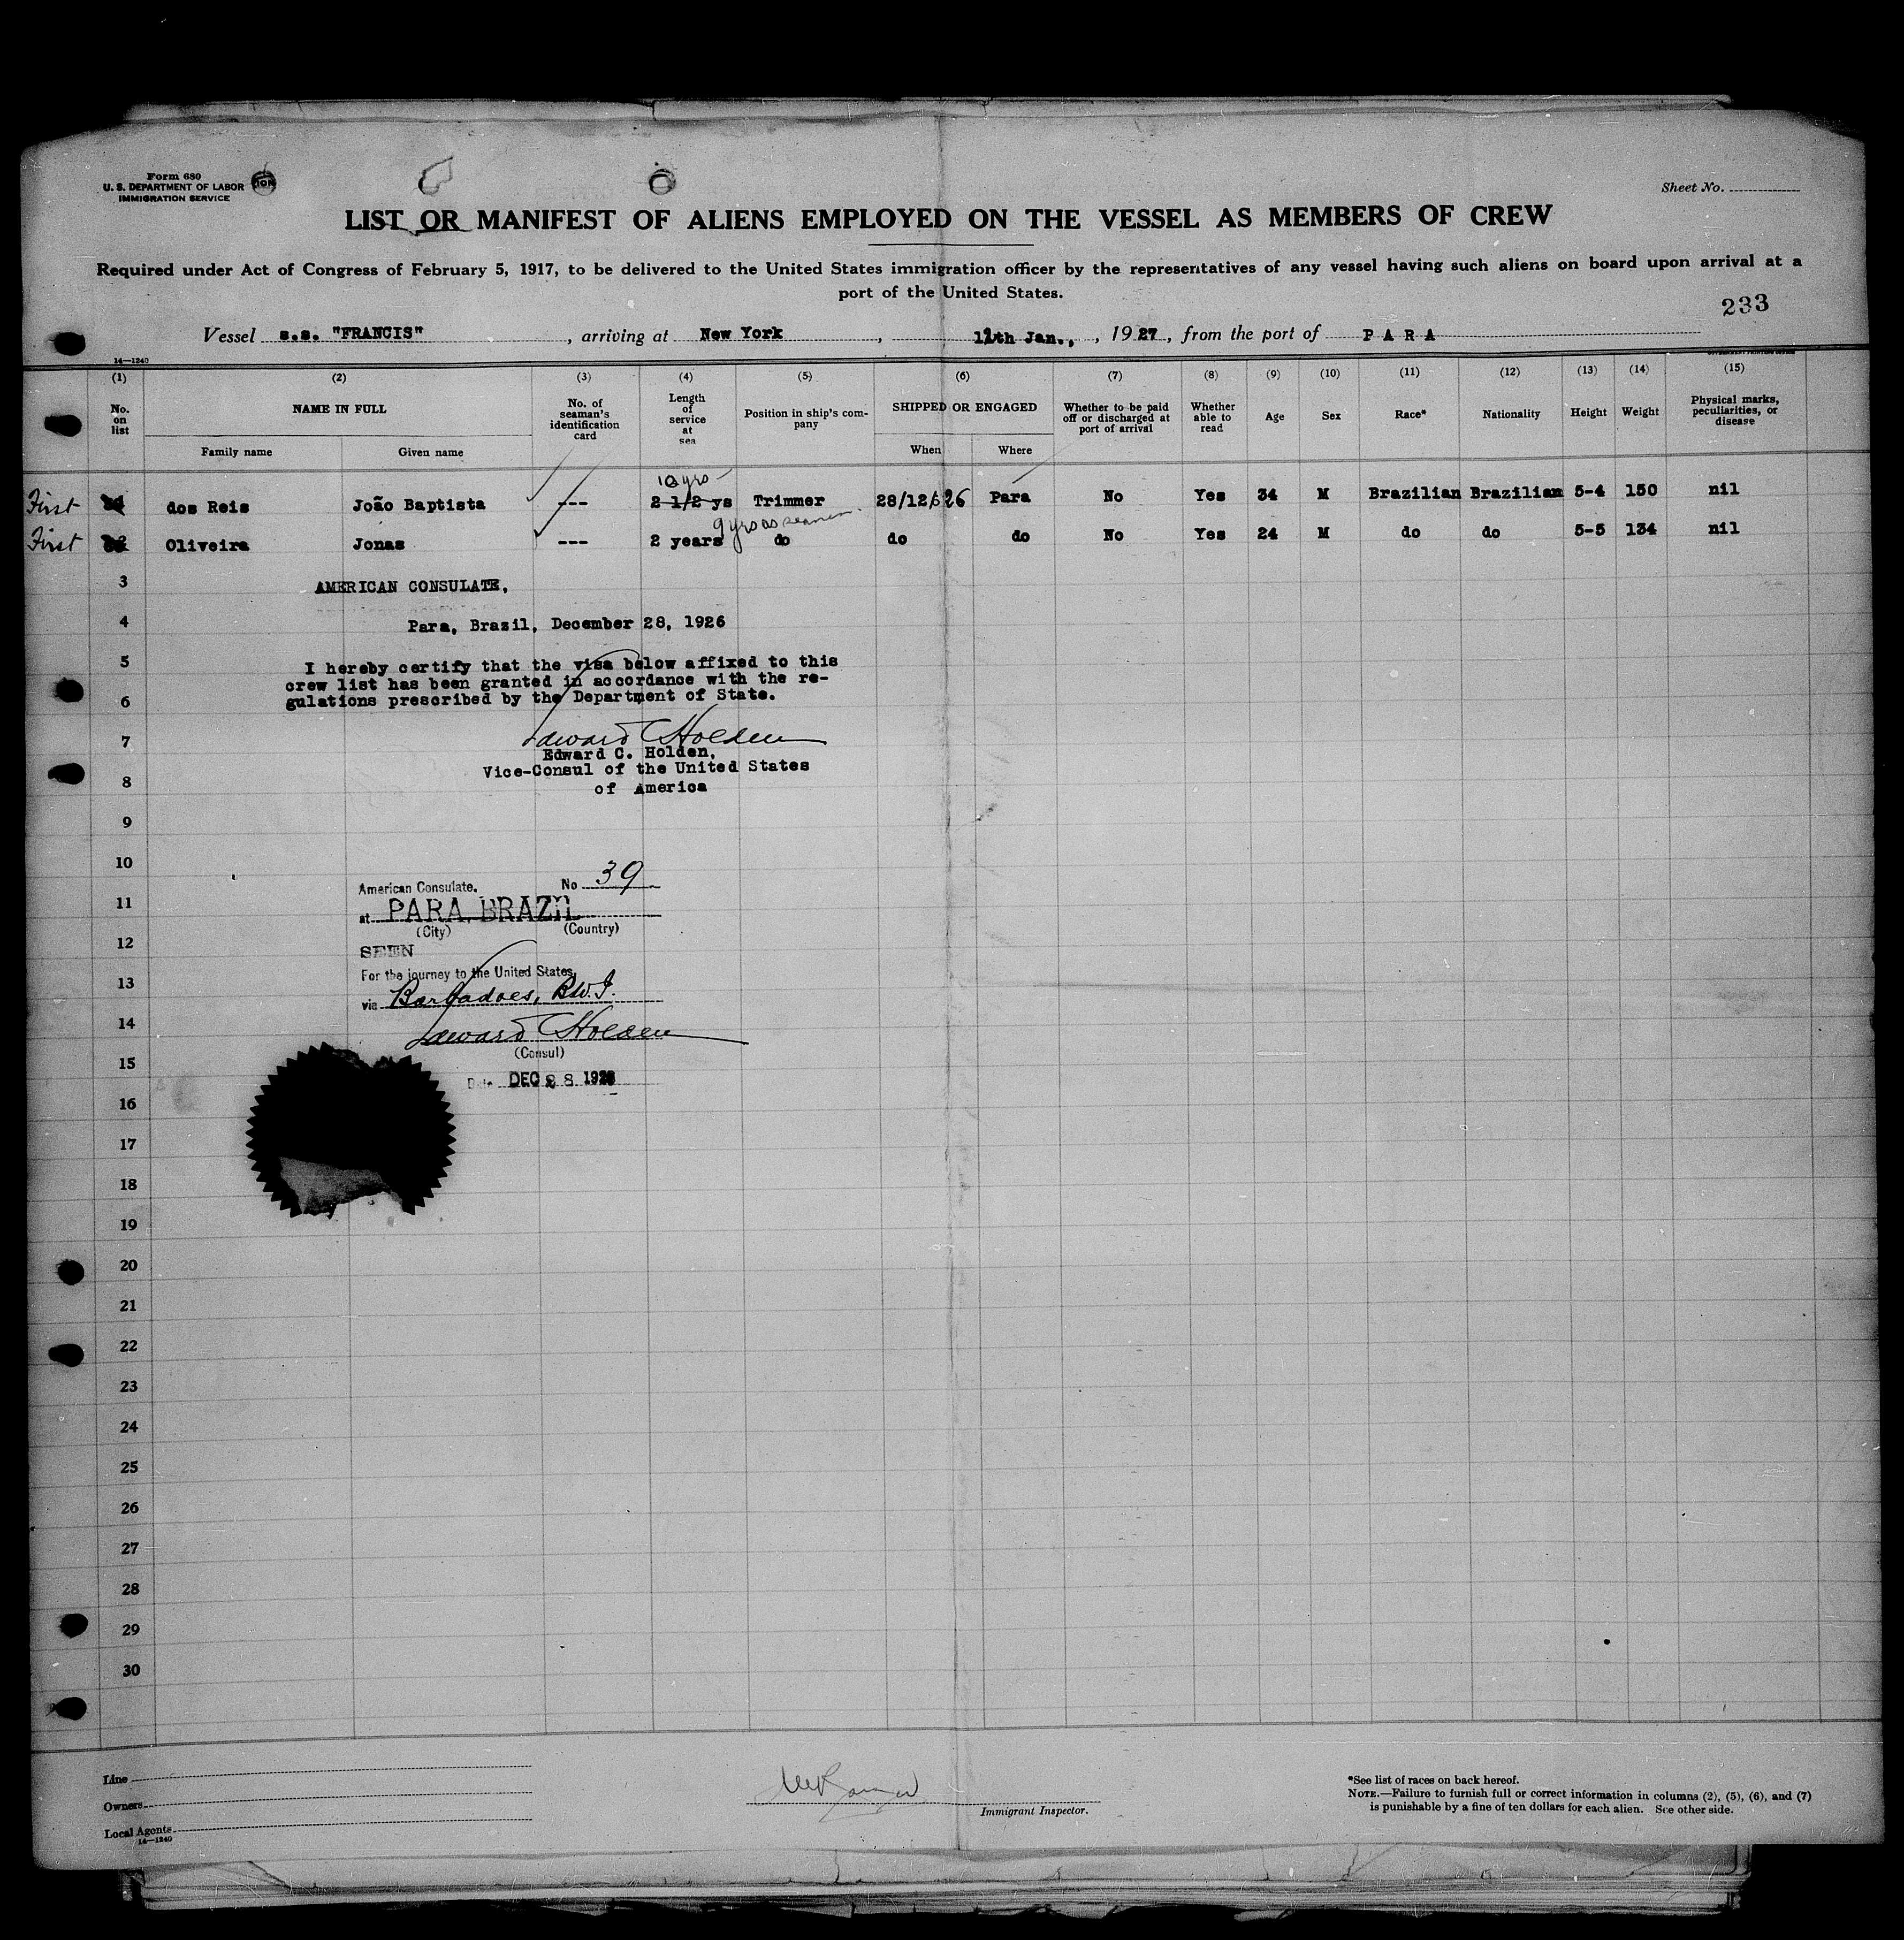 Form 680
U. S. DEPARTMENT OF LABOR
IMMIGRATION SERVICE
Sheet No.
LIST OR MANIFEST OF ALIENS EMPLOYED ON THE VESSEL AS MEMBERS OF CREW
Required under Act of Congress of February 5, 1917, to be delivered to the United States immigration officer by the representatives of any vessel having such aliens on board upon arrival at a
port of the United States.
233
Vessel s.s. "FRANCIS", arriving at New York, Jan., 1927, from the port of PARA
14—1240
(1) (2) (3) (4) (5) (6) (7) (8) (9) (10) (11) (12) (13) (14) (15)
No. on list
NAME IN FULL
Family name
Given name
No. of seaman's identification card
Length of service at sea
Position in ship's company
SHIPPED OR ENGAGED
When
Where
Whether to be paid off or discharged at port of arrival
Whether able to read
Age
Sex
Race*
Nationality
Height
Weight
Physical marks, peculiarities, or disease
10 yrs
First dos Reis João Baptista --- 2 1/2 ys Trimmer 28/12/26 Para No Yes 34 M Brazilian Brazilian 5-4 150 nil
9 yrs as seaman
First Oliveira Jonas --- 2 years do do do No Yes 24 M do do 5-5 134 nil
3
AMERICAN CONSULATE,
4
Para, Brazil, December 28, 1926
5
I hereby certify that the visa below affixed to this
crew list has been granted in accordance with the re-
6
gulations prescribed by the Department of State.
7
Edward C Holden
Edward C. Holden,
Vice-Consul of the United States
8
of America
9
10
American Consulate. No 39
11
at PARA, BRAZIL
(City) (Country)
12
SEEN
For the journey to the United States,
13
via Barbadoes, B.W.I.
14
Edward C Holden
(Consul)
15
Date DEC 28 1926
16
17
18
19
20
21
22
23
24
25
26
27
28
29
30
Line
Owners
Local Agents
14—1240
Immigrant Inspector.
*See list of races on back hereof.
NOTE.—Failure to furnish full or correct information in columns (2), (5), (6), and (7)
is punishable by a fine of ten dollars for each alien. See other side.